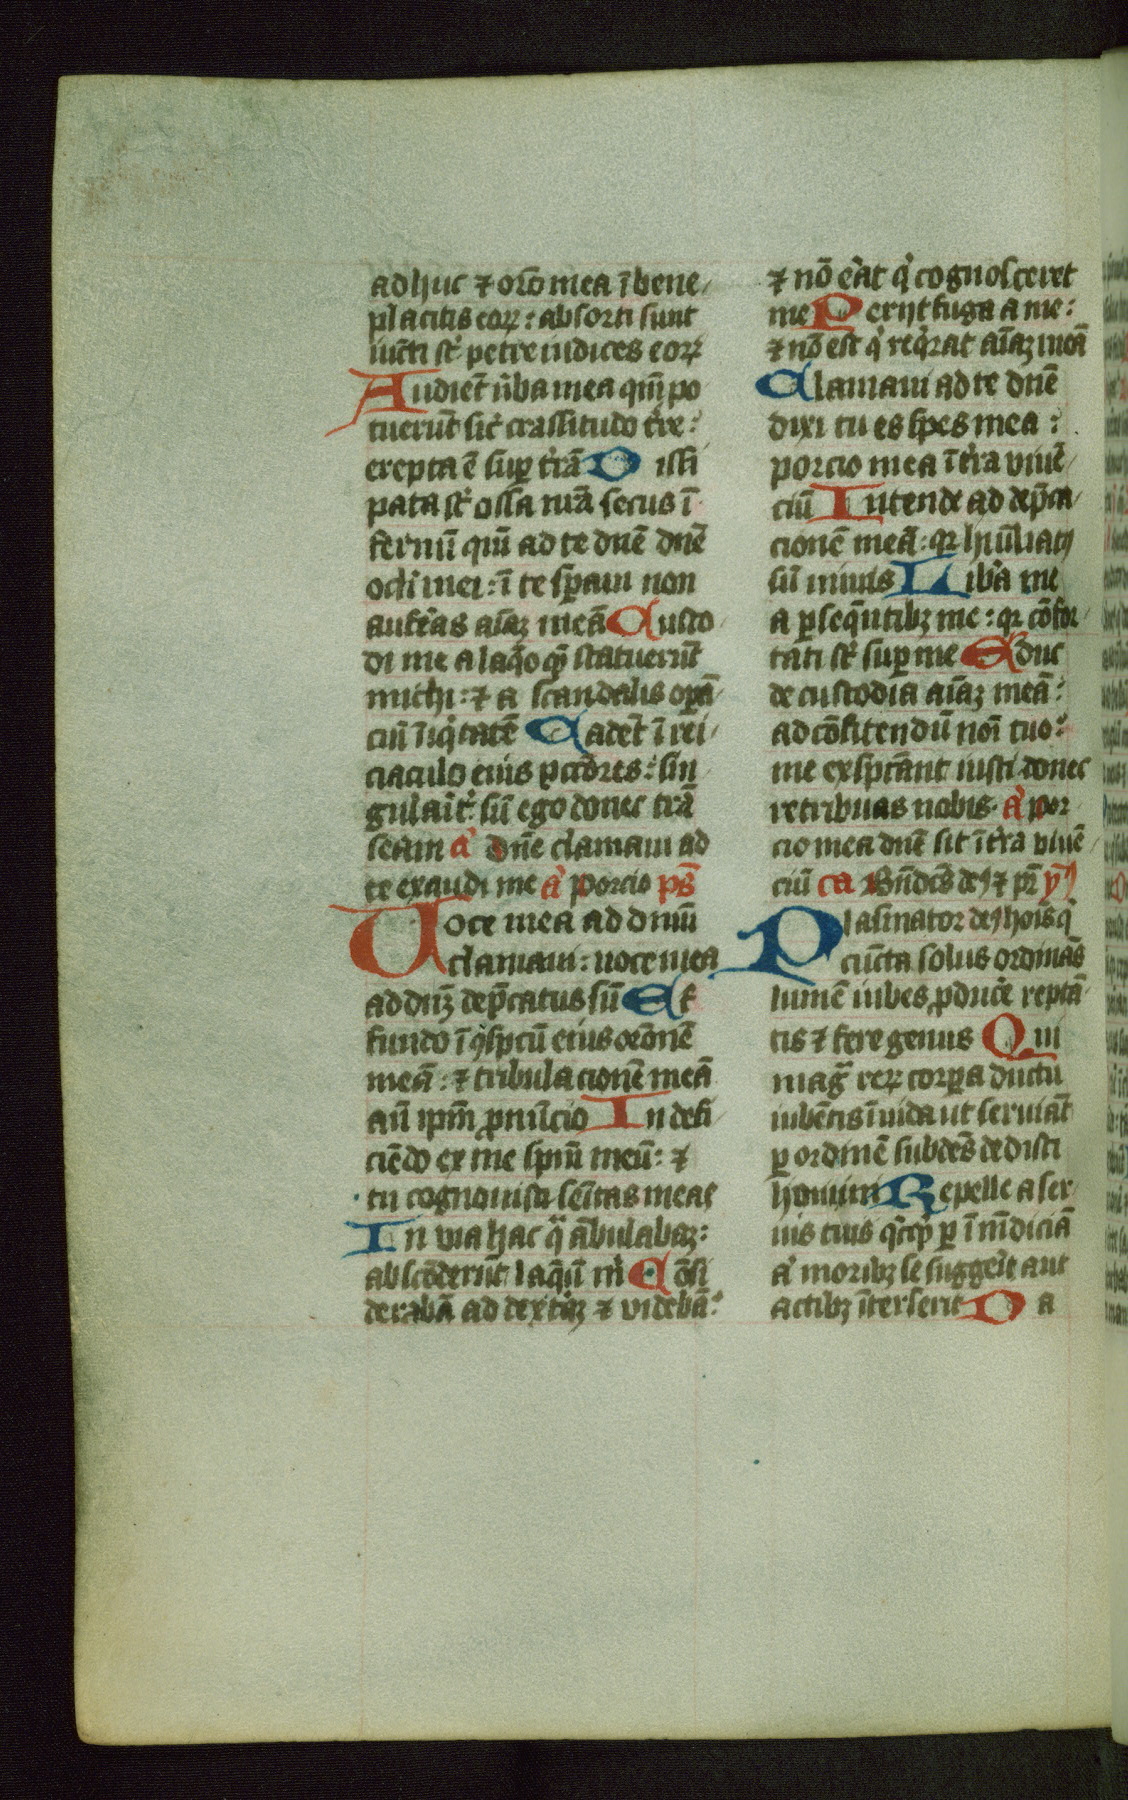 adhuc ⁊ oro͞ mea ī bene
placitis eoꝝ : absorti sunt
iuncti st͛ petre iudices eoꝝ
Audiet͞ ũba mea qm̄ po
tuerut͞ sic͛ crassitudo tr͛e :
erepta ē suꝑ tr͛ā Dissi
pata st͛ ossa nr͞a secus ī
fernū quīa ad te dne͞ dne͞
oc͞li mei : ī te sꝑaui non
aufer͛as aīaꝫ meā Custo
di me a laq͛o que͞ statuerut͞
michi : ⁊ a scandalis oꝑa͞
ciū īiq͛tatē Cadet͞ ī ret͞i
ciaculo eius pc͞cores : sin
gularit͛ : sū ego donec trā
seam a͛ dne͞ clamaui ad
te exaudi me a͛ Porcio ps͞
Uoce mea ad dnm̄
clamaui : uoce mea
ad dn͞ꝫ dep͛catus sū Ef
fundo ī ꝯspc͞tū eius oro͞nē
meā : ⁊ tribulacionē meā
an͞ ipm̄ ꝓnu͞cio In defi
cie͞do ex me spm̄ meū : ⁊
tu cognouisti semi͞tas meas
In uia hac qͣ a͞bulabaꝫ :
absco͞derut͞ laq͛ū m͛ Co͞si
derabā ad dextr͛aꝫ ⁊ videbā :
⁊ nō er͛at q͛ cognosceret
me Perijt fuga a me :
⁊ nō est q͛ req͛rat aīaꝫ meā
Clamaui ad te dne͞
dixi tu es spes mea :
porcio mea ī tr͛a viue͞
ciū Intende ad dep͛ca
cionē meā : qꝛ hūiliatꝰ
sū nimis Lib͛a me
a ꝑseque͞ntibꝫ me : qꝛ co͞for
tati st͛ suꝑ me Educ
de custodia aīaꝫ meā :
ad co͞fitendū noī tuo :
me exspc͞tant iusti donec
retribuas nobis a͛ por
cio mea dne͞ sit ī tr͛a viue͞
ciū ca Bn͞dcs͞ deꝰ ⁊ pr͞ yꝰ
Plasmator deꝰ hoīs q͛
cun͞cta solus ordinās
humē iubes ꝓducer͛e repta͞
tis ⁊ fere genus Qui
magͣ reꝝ corꝑa dictu
iube͞ntis īuida ut seruiāt
ꝑ ordinē subdēs dedisti
homini Repelle a ser
uis tuis q͛cq͛ ꝑ īmu͞diciā
a͛ moribꝫ se suggerit aut
actibꝫ īterserit Da